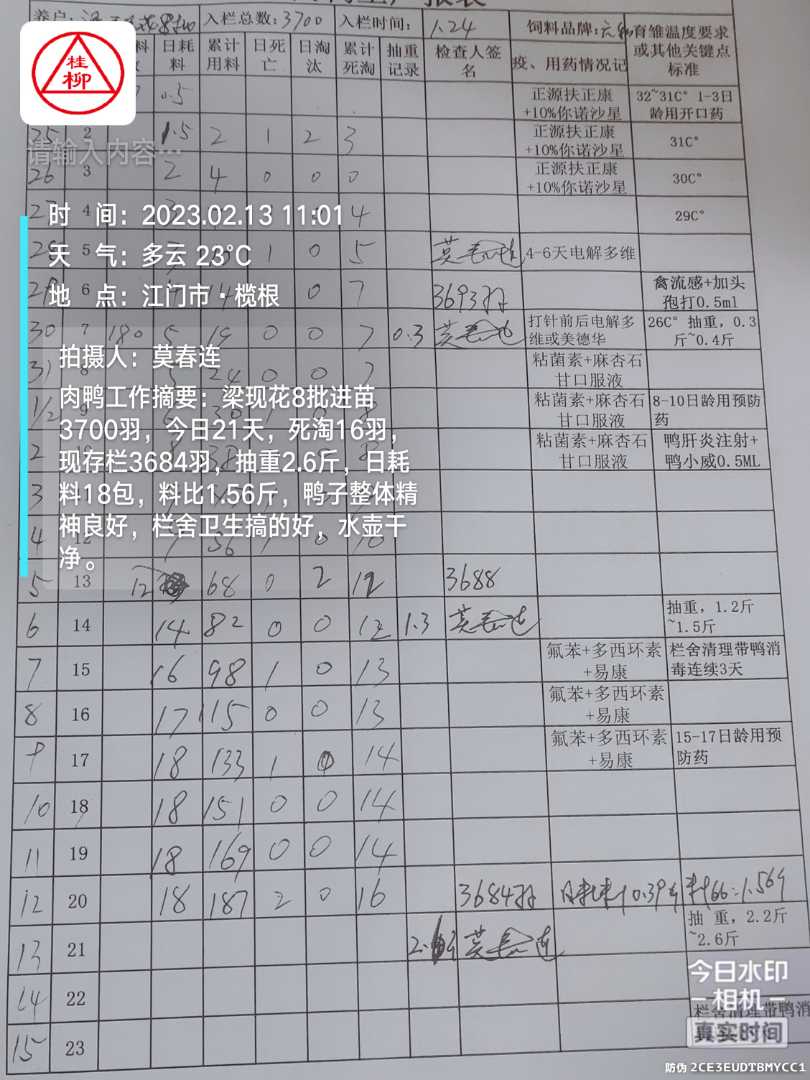 入栏总数:3700 入栏时间: 1.24 饲料品牌:
育雏温度要求
或其他关键点
标准
日耗料 累计用料 日死亡 日淘汰 累计死淘 抽重记录 检查人签名 疫、用药情况记
桂柳
请输入内容…
0.5 正源扶正康+10%你诺沙星 32~31C° 1-3日龄用开口药
25 2 1.5 2 1 2 3 正源扶正康+10%你诺沙星 31C°
26 3 2 4 0 0 0 正源扶正康+10%你诺沙星 30C°
4 4 29C°
5 1 0 5 4-6天电解多维
6 0 7 3693羽 禽流感+加头孢打0.5ml
30 7 180 5 19 0 0 7 0.3 打针前后电解多维或美德华 26C° 抽重,0.3斤~0.4斤
31 粘菌素+麻杏石甘口服液
1/2 粘菌素+麻杏石甘口服液 8-10日龄用预防药
2 粘菌素+麻杏石甘口服液 鸭肝炎注射+鸭小威0.5ML
3
4
时 间：2023.02.13 11:01
天 气：多云 23℃
地 点：江门市·榄根
拍摄人：莫春连
肉鸭工作摘要：梁现花8批进苗
3700羽，今日21天，死淘16羽，
现存栏3684羽，抽重2.6斤，日耗
料18包，料比1.56斤，鸭子整体精
神良好，栏舍卫生搞的好，水壶干
净。
5 13 12 68 0 2 12 3688
6 14 14 82 0 0 12 1.3 莫春连 抽重,1.2斤~1.5斤
7 15 16 98 1 0 13 氟苯+多西环素+易康 栏舍清理带鸭消毒连续3天
8 16 17 115 0 0 13 氟苯+多西环素+易康
9 17 18 133 1 0 14 氟苯+多西环素+易康 15-17日龄用预防药
10 18 18 151 0 0 14
11 19 18 169 0 0 14
12 20 18 187 2 0 16 3684羽
13 21 莫春连 抽 重,2.2斤~2.6斤
14 22
15 23 栏舍清理带鸭消
今日水印
相机
真实时间
防伪 2CE3EUDTBMYCC1